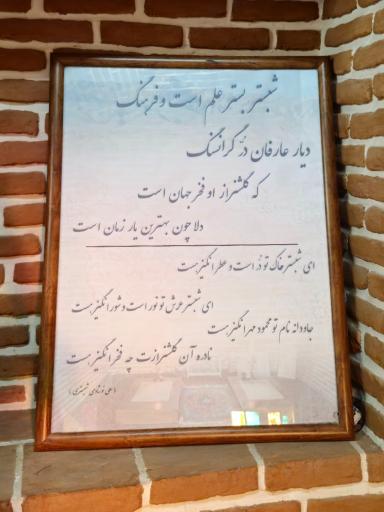 شبستر بستر علم است و فرهنگ
دیار عارفان دُرّ گرانسنگ
که گلشنراز او فخر جهان است
دلا چون بهترین یار زمان است
ای شبستر خاک تو دُر است و عطر انگیز هست
ای شبستر عرش تو نور است و شور انگیز هست
جاودانه نام تو محمود مهر انگیز هست
نادره آن گلشنرازت چه فخر انگیز هست
(علی نوزادی شبستری)